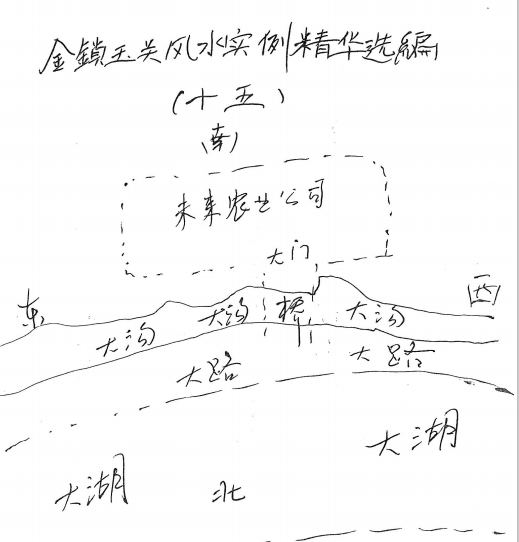 金鎖玉关风水实例精华选编
(十五)
(南)
未来农业公司
大门
东
西
大沟
大沟
桥
大沟
大路
大路
大湖
北
大湖